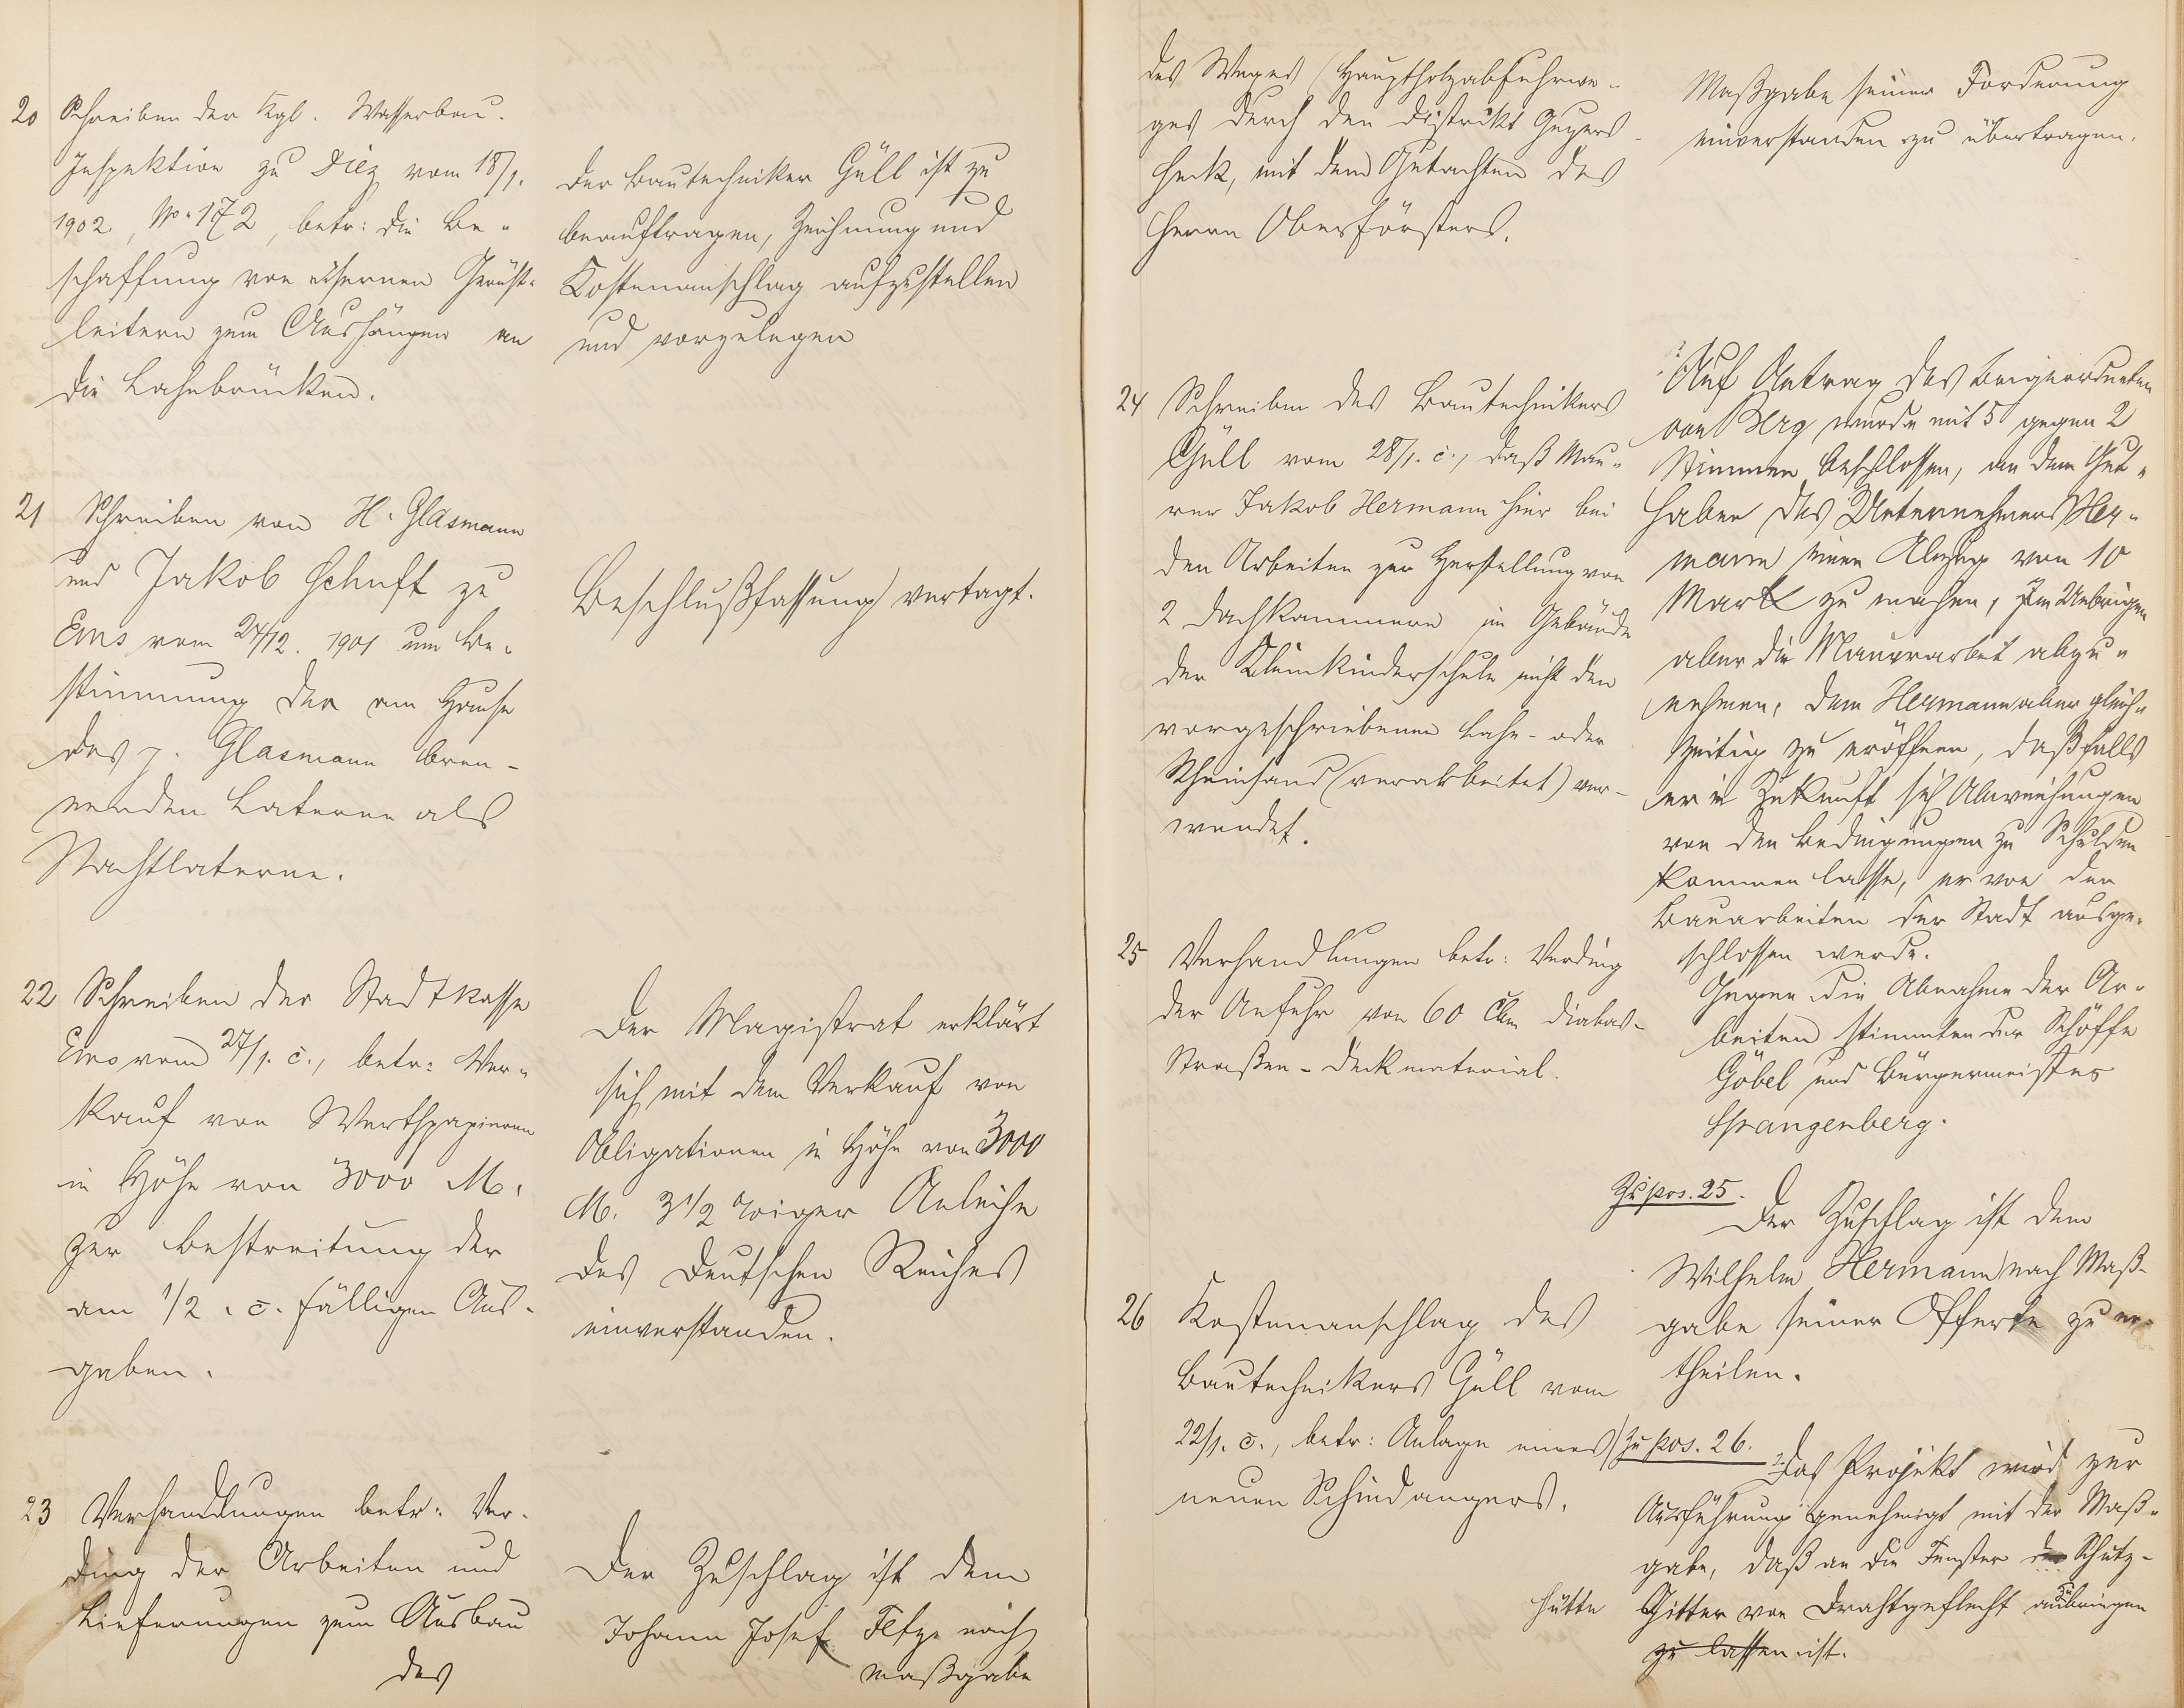 20 Schreiben der Kgl. Wasserbau-
Inspektion zu Diez vom 18/1.
1902, No. 172, betr: die Be-
schaffung von eisernen Gerüst-
leitern zum Aushängen an
die Lahnbrücken.
Der Bautechniker Güll ist zu
beauftragen, Zeichnung und
Kostenanschlag aufzustellen
und vorzulegen
21 Schreiben von H. Glasmann
und Jakob Schuft zu
Ems vom 24/12. 1901 um Be-
stimmung der am Hause
des p. Glasmann bren-
nenden Laterne als
Nachtlaterne.
Beschlußfassung vertagt.
22 Schreiben der Stadtkasse
Ems vom 27/1. c., betr: Ver-
kauf von Werthpapieren
in Höhe von 3000 M.
zur Bestreitung der
am 1/2. c. fälligen Aus-
gaben.
Der Magistrat erklärt
sich mit dem Verkauf von
Obligationen in Höhe von 3000
M. 3 1/2 %iger Anleihe
des Deutschen Reiches
einverstanden.
23 Verhandlungen betr: Ver-
ding der Arbeiten und
Lieferungen zum Ausbau
des
Der Zuschlag ist dem
Johann Josef nach
Maßgabe
des Weges (Hauptholzabfuhrwe-
ges durch den Distrikt Geyers-
heck, mit dem Gutachten des
Herrn Oberförsters.
Maßgabe seiner Forderung
einverstanden zu übertragen.
24 Schreiben des Bautechnikers
Güll vom 28/1. c., daß Mau-
rer Jakob Hermann hier bei
den Arbeiten zur Herstellung von
2 Dachkammern im Gebäude
der Kleinkinderschule nicht den
vorgeschriebenen Lahn- oder
Rheinsand (verarbeitet) ver-
wendet.
Auf Antrag des Beigeordneten
von wurde mit 5 gegen 2
Stimmen beschlossen, an dem Gut-
haben des Unternehmers Her-
mann einen Abzug von 10
Mark zu machen, im Uebrigen
aber die Maurerarbeit abzu-
nehmen, dem Hermann aber gleich-
zeitig zu eröffnen, daß falls
er in Zukunft sich Abweichungen
von den Bedingungen zu Schulden
kommen lasse, er von den
Bauarbeiten der Stadt ausge-
schlossen werde.
Gegen die Abnahme der Ar-
beiten stimmten der Schöffe
Göbel und Bürgermeister
Spangenberg.
25 Verhandlungen betr: Verding
der Anfuhr von 60 Cbm Diabas-
Straßen-Deckmaterial.
Zu pos. 25.
Der Zuschlag ist dem
Wilhelm Hermann nach Maß-
gabe seiner Offerte zu er-
theilen.
26 Kostenanschlag des
Bautechnikers Güll vom
22/1. c., betr: Anlage eines
neuen Schindangers.
Zu pos. 26.
Das Projekt wird zur
Ausführung genehmigt mit der Maß-
gabe, daß an die Fenster der Schutz-
hütte Gitter von Drahtgeflecht anzubringen
zu lassen ist.